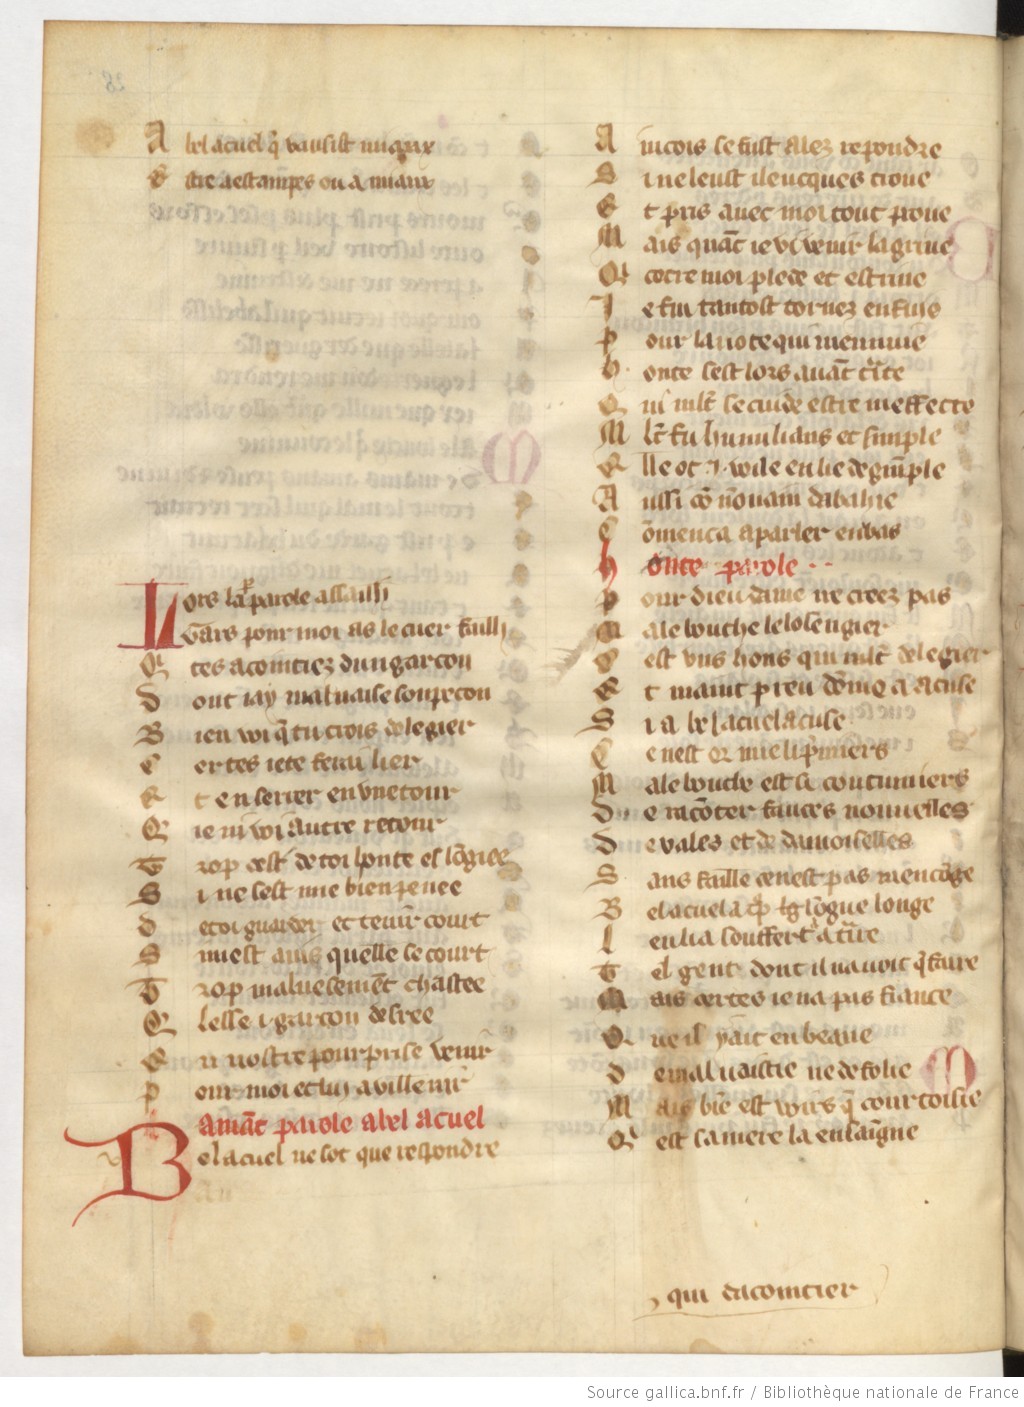 A bel acuel q̃ vausist miquix
E stre a estampes ou a miaux
Lors la parole assailli
Gars pour moi as le cuer failli
Qͥ tes acointiez dun garcon
D ont iay maluaise soupecon
B ien voi q̃ tu crois de legier
C ertes iete ferai lier
E t enserrer en vne tour
Q̃ ie ni voi autre retour
T rop cest de toi honte eslõgiee
S i ne sest mie bien penee
D e toi guarder et tenir court
S i mest auis quelle secourt
T rop maluesemẽt chastee
Q̃ lesse .i. garcon desree
E n nostre pourprise venir
P our moi et luj a villenir
Lamãt parole a bel acuel
B el acuel ne sot que respondre
A incois se fust alez repondre
S i ne leust ileucques troue
E t pris auec moi tout proue
M ais quãt ie vi venir la griue
Qͥ cotre moi plede et estriue
J e fui tantost tornez en fuie
P our la riote qui mennuie
H onte sest lors auãt t̃ite
Q ui ml̃t se cuide estre meffecte
M l̃t fu humilians et simple
E lle ot .i. voile en lie de guĩple
A ussi cõ nõnain dabaie
C õmenca a parler en bas
H onte parole
P our dieu dame ne creez pas
M ale bouche le losengier
C est vns hons qui ml̃t de legier
E t maint preudõme a acuse
S i a bel acuel acuse
C e nest or mie li p̃miers
M ale bouche est si coutumiers
D e racõter fauces nouuelles
D e vales et de damoiselles
S ans faille ce nest pas mencõge
B el acuel a trop lõgue longe
L en li a souffert atͥre
T el gent dont il nauoit q̃ faire
M ais certes ie na pas fiance
Q ue il y ait en beance
D e maluaistie ne de folie
M ais biẽ est voirs q̃ courtoisie
Qͥ est sa mere la ensaigne
qui dacointier
Source gallica.bnf.fr / Bibliothèque nationale de France